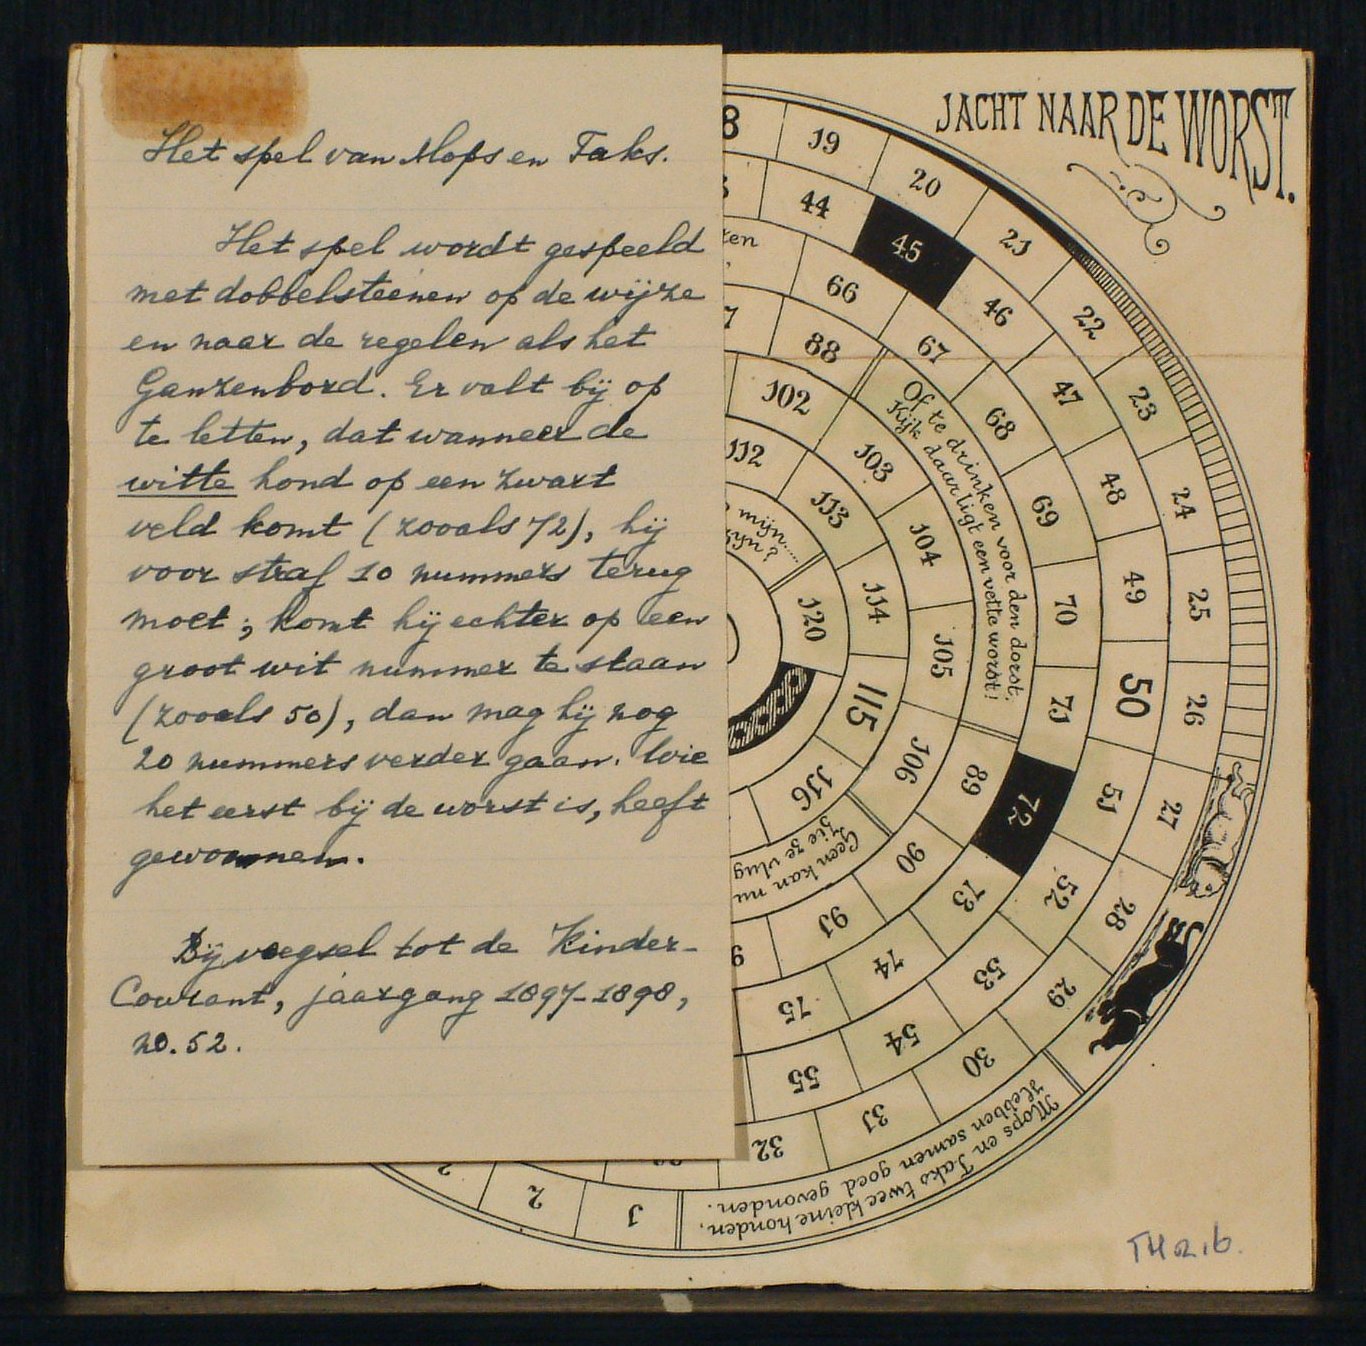 Het spel van Mops en Taks.
Het spel wordt gespeeld
met dobbelsteenen op de wijze
en naar de regelen als het
Ganzenbord. Er valt bij op
te letten, dat wanneer de
witte hond op een zwart
veld komt (zooals 72), hij
voor straf 10 nummers terug
moet; komt hij echter op een
groot wit nummer te staan
(zooals 50), dan mag hij nog
20 nummers verder gaan. Wie
het eerst bij de worst is, heeft
gewonnen.
Bijvoegsel tot de Kinder-
Courant, jaargang 1897-1898,
no. 52.
JACHT NAAR DE WORST.
1
2
Mops en Taks twee kleine honden,
Hebben samen goed gevonden.
8
19
20
21
22
23
24
25
26
27
28
29
30
31
32
44
45
46
47
48
49
50
51
52
53
54
55
66
67
68
69
70
71
72
73
74
75
88
Of te drinken voor den dorst,
Kijk daar ligt een vette worst!
89
90
91
9
102
103
104
105
106
Geen kan nu
Zie ze vlug
112
113
114
115
116
mijn.....
zyn?
120
TH 02.b.